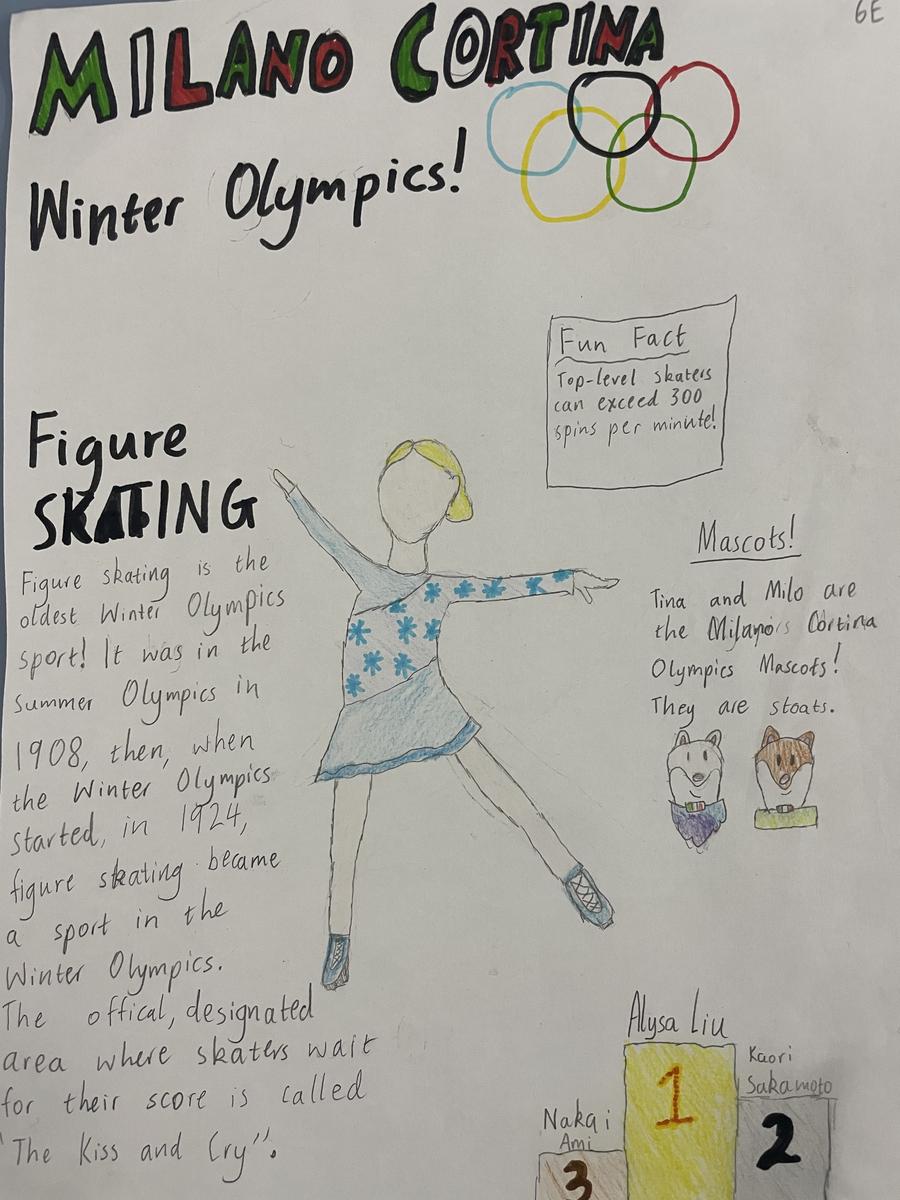 6E
MILANO CORTINA
Winter Olympics!
Fun Fact
Top-level skaters
can exceed 300
spins per minute!
Figure
SKATING
Figure skating is the
oldest Winter Olympics
sport! It was in the
Summer Olympics in
1908, then, when
the Winter Olympics
started, in 1924,
figure skating became
a sport in the
Winter Olympics.
The offical, designated
area where skaters wait
for their score is called
"The Kiss and Cry".
Mascots!
Tina and Milo are
the Cortina
Olympics Mascots!
They are stoats.
Alysa Liu
1
Kaori
Sakamoto
2
Nakai
Ami
3